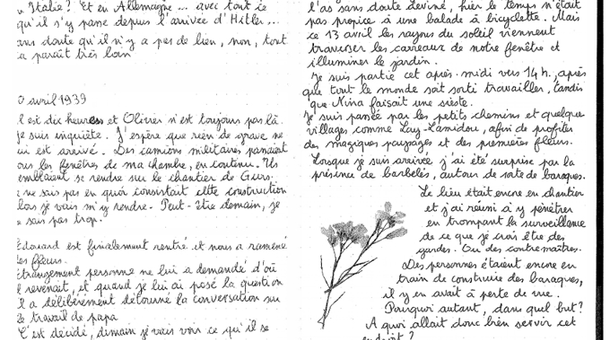 "Italie? Et en Allemagne... avec tout ce
qu'il s'y passe depuis l'arrivée d'Hitler...
sans doute qu'il n'y a pas de lien, non, tout
paraît très loin
avril 1939
est dix heures et Olivier n'est toujours pas là.
je suis inquiète. J'espère que rien de grave ne
lui est arrivé. Des camions militaires passaient
sous les fenêtres de ma chambre, en continu. Ils
semblaient se rendre sur le chantier de Gurs.
ne sais pas en quoi consistait cette construction
alors je vais m'y rendre. Peut-être demain, je
sais pas trop.
Edouard est finalement rentré et nous a ramené
des fleurs.
Étrangement personne ne lui a demandé d'où
revenait, et quand je lui ai posé la question
il a délibérément détourné la conversation sur
le travail de papa
C'est décidé, demain je vais voir ce qu'il se
l'as sans doute deviné, hier le temps n'était
pas propice à une balade à bicyclette. Mais
ce 13 avril les rayons du soleil viennent
traverser les carreaux de notre fenêtre et
illuminer le jardin.
Je suis partie cet après-midi vers 14h, après
que tout le monde soit sorti travailler, tandis
que Nina faisait une sieste.
Je suis passée par les petits chemins et quelque
villages comme Lay-Lamidou, afin de profiter
des magiques paysages et des premières fleurs.
Lorsque je suis arrivée j'ai été surprise par la
présence de barbelés, autour de sorte de baraques.
Le lieu était encore en chantier
et j'ai réussi à y pénétrer
en trompant la surveillance
de ce que je crois être des
gardes. Ou des contremaîtres.
Des personnes étaient encore en
train de construire des baraques,
il y en avait à perte de vue.
Pourquoi autant, dans quel but?
A quoi allait donc bien servir cet
endroit?